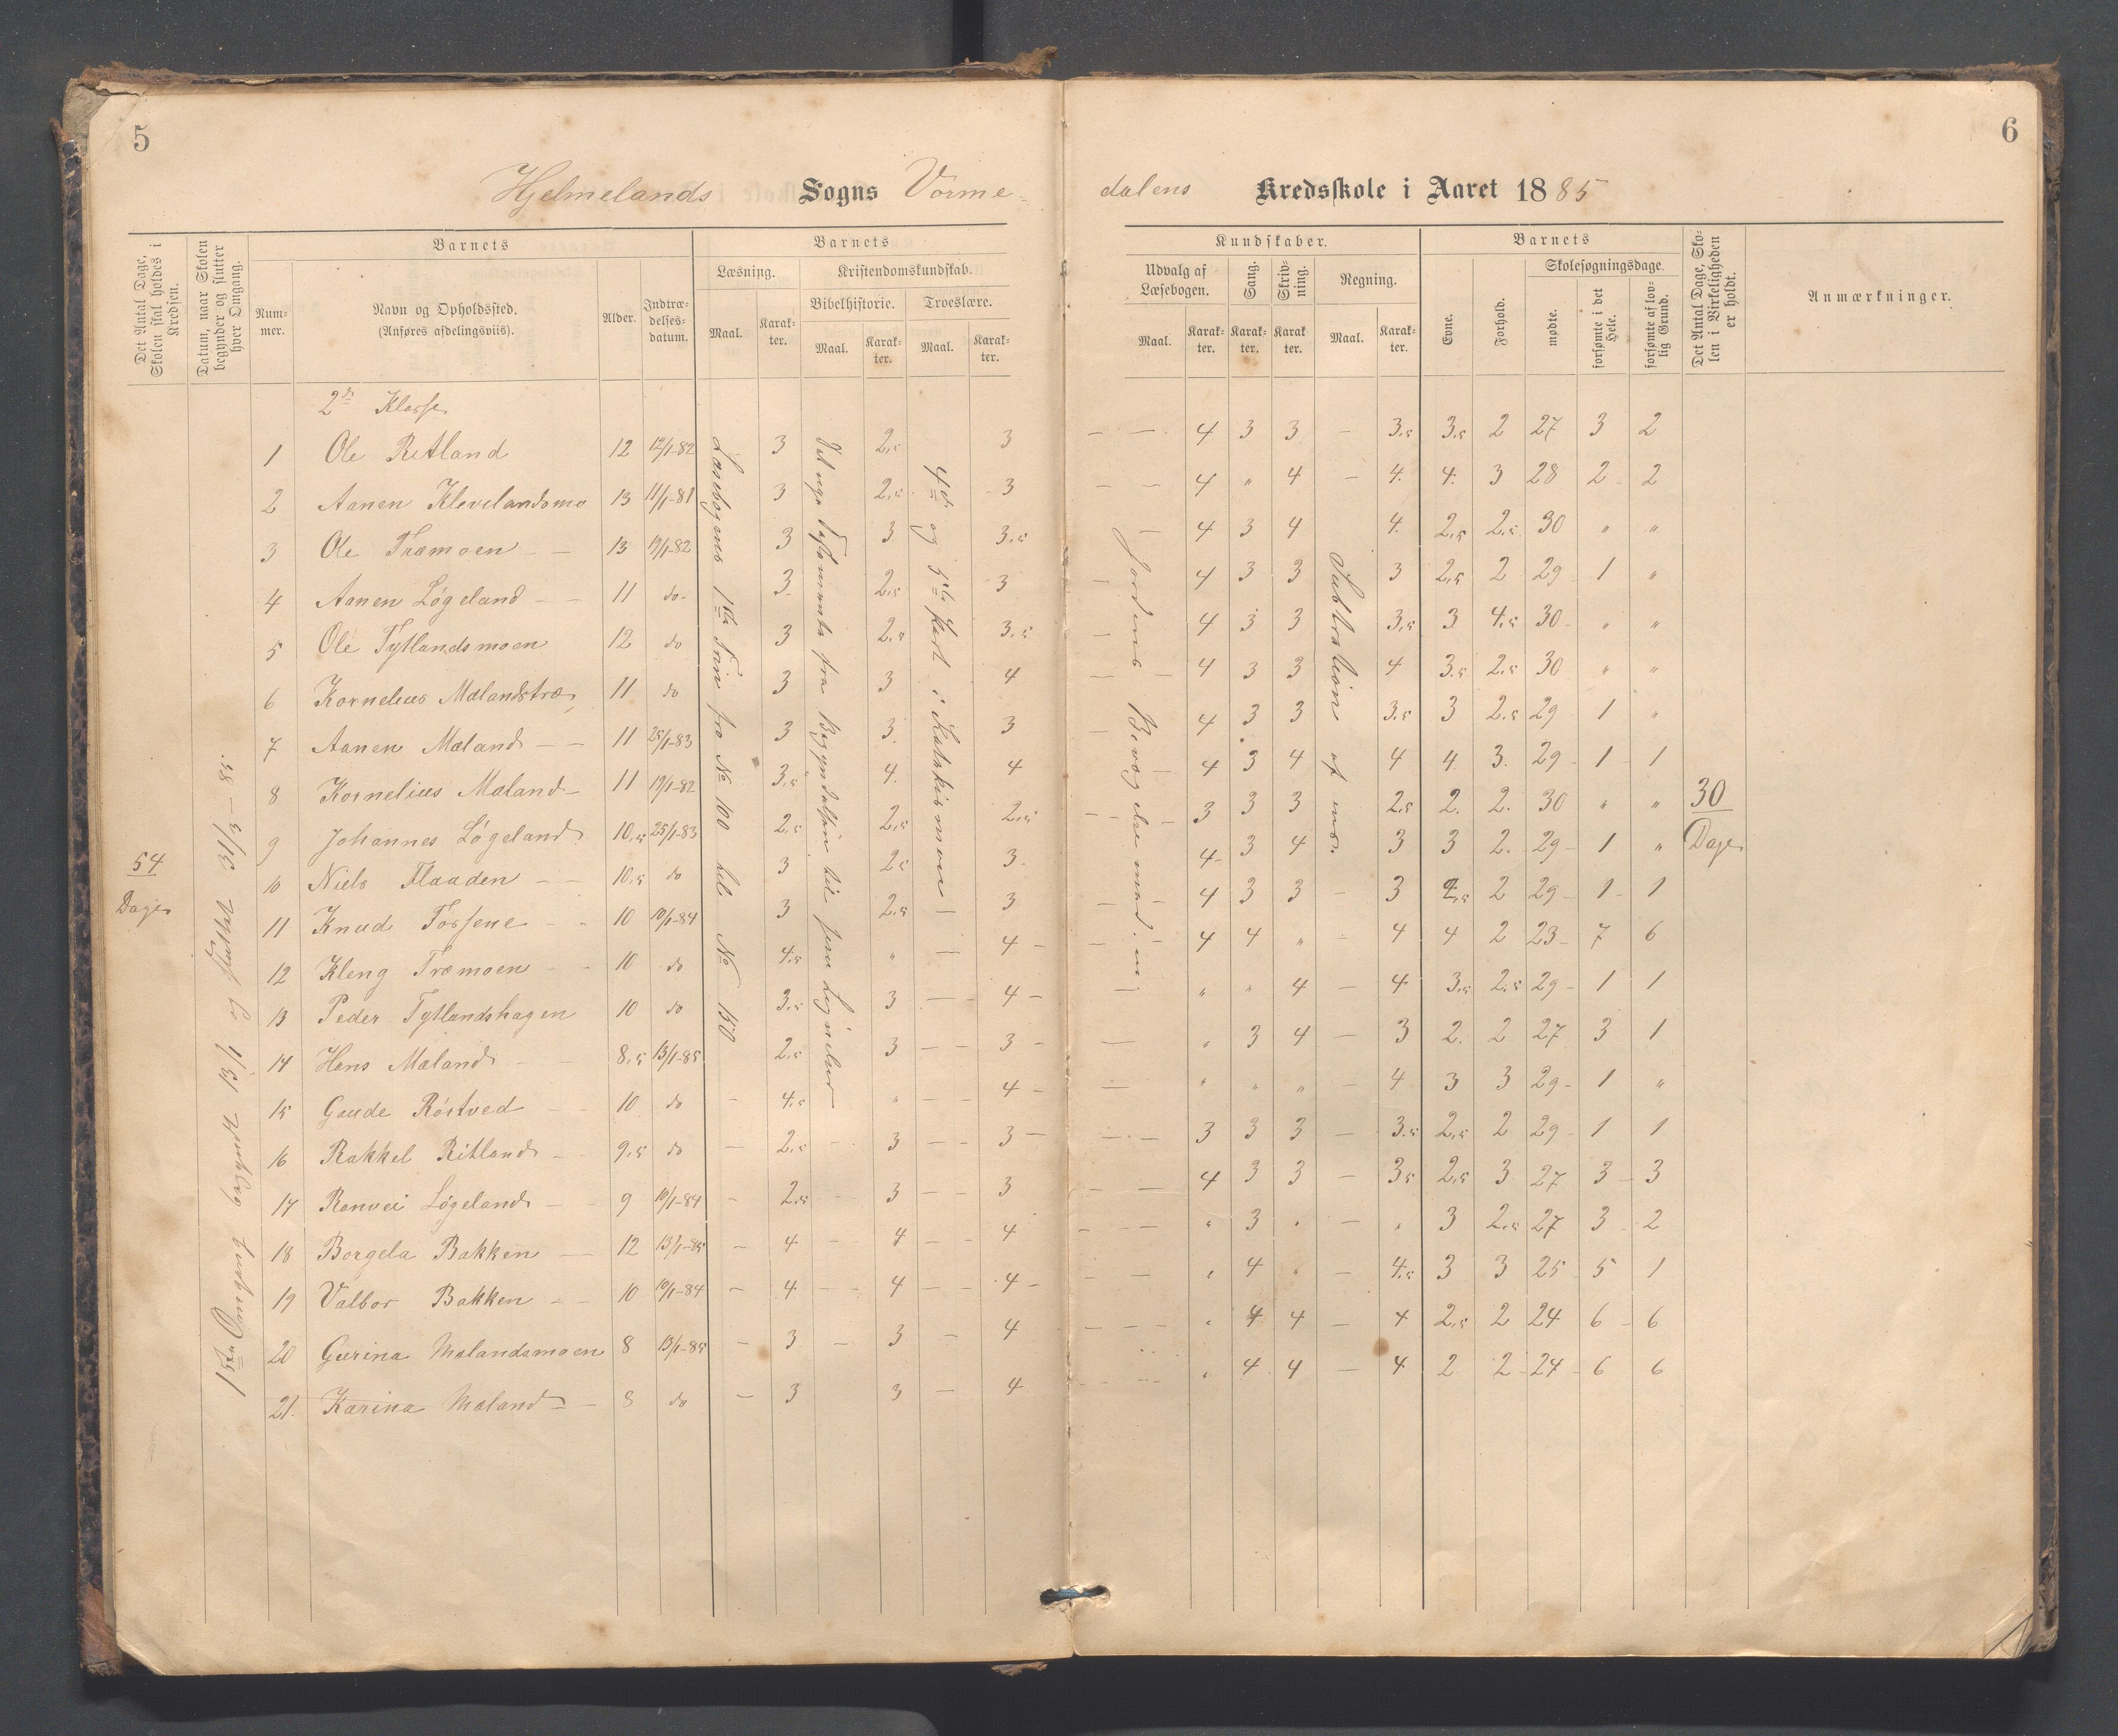 5
6
Hjelmelands Sogns Vorme-
dalens Kredsskole i Aaret 1885
Det Antal Dage, Skolen skal holdes i Kredsen.
Datum, naar Skolen begynder og slutter hver Omgang.
Barnets
Nummer.
Navn og Opholdssted.
(Anføres afdelingsviis).
Alder.
Indtrædelsesdatum.
Barnets
Læsning.
Maal.
Karakter.
Kristendomskundskab.
Bibelhistorie.
Maal.
Karakter.
Troeslære.
Maal.
Karakter.
Kundskaber.
Udvalg af Læsebogen.
Maal.
Karakter.
Sang.
Karakter.
Skrivning.
Karakter.
Regning.
Maal.
Karakter.
Barnets
Evne.
Forhold.
Skolesøgningsdage.
mødte.
forsømte i det Hele.
forsømte af lovlig Grund.
Det Antal Dage, Skolen i Virkeligheden er holdt.
Anmærkninger.
54 Dage
1ste Omgang begyndt 13/1 og sluttet 31/3-85.
Læsebogens 1ste Trin fra No 100 hele No 150
Det nye Testamente fra Begyndelsen til
4de og 5te Part i Katekismen
Jordens Bevægelse
Subtraktion af
30 Dage
2den Klasse
1 Ole Ritland 12 12/1-82 3 2,5 3 — — 4 3 3 — 3,5 3,5 2 27 3 2
2 Aanen Klevelandsmo 13 11/1-81 3 2,5 3 — — 4 " 4 — 4 4 3 28 2 2
3 Ole Træmoen 13 19/1-82 3 3 3,5 — 4 3 4 4 2,5 2,5 30 " "
4 Aanen Løgeland 11 do 3 2,5 3 — 4 3 3 3 2,5 2 29 1 "
5 Ole Tytlandsmoen 12 do 3 2,5 3,5 — 4 3 3 3,5 3 4,5 30 " "
6 Kornelius Mælandstræ 11 do 3 3 4 — — 4 3 3 4 3,5 2,5 30 " "
7 Aanen Mæland 11 25/1-83 3 3 3 — 4 3 3 3,5 3 2,5 29 1 "
8 Kornelius Mæland 11 19/1-82 3,5 4 4 — 4 3 4 4 4 3 29 1 1
9 Johannes Løgeland 10,5 25/1-83 2,5 2,5 2,5 — — 3 3 3 2,5 2 2 30 " "
10 Niels Flaaden 10,5 do 3 2,5 3 4 3 4 3 3 2 29 1 "
11 Knud Torsene 10 10/1-84 3 2,5 — 3 — — 4 3 3 — 3 2,5 2 29 1 1
12 Kleng Træmoen 10 do 4,5 " — 4 — — 4 4 " — 4 4 2 23 7 6
13 Peder Tytlandshagen 10 do 3,5 3 — 4 — " " 4 — 4 3,5 2,5 29 1 1
14 Hans Mæland 8,5 13/1-85 2,5 3 — 3 — " 3 4 — 3 2 2 27 3 1
15 Gaude Røstved 10 do — 4,5 " — 4 — " " " — 4 3 3 29 1 "
16 Rakkel Ritland 9,5 do — 2,5 — 3 — 3 — — 3 3 3 — 3,5 2,5 2 29 1 1
17 Ranvei Løgeland 9 10/1-84 — 2,5 — 3 — 3 — — 4 3 3 — 3,5 2,5 3 27 3 3
18 Borgela Bakken 12 13/1-85 — 4 — 4 — 4 — — " 3 " — " 3 2,5 27 3 2
19 Valbor Bakken 10 10/1-84 — 4 — 4 — 4 — — " 4 " — 4,5 3 3 25 5 1
20 Gurina Mælandsmoen 8 13/1-85 — 3 — 3 — 4 — — " 4 4 — 4 2,5 2 24 6 6
21. Karina Mæland 8 do — 3 3 — 4 — — " 4 4 — 4 2 2 24 6 6